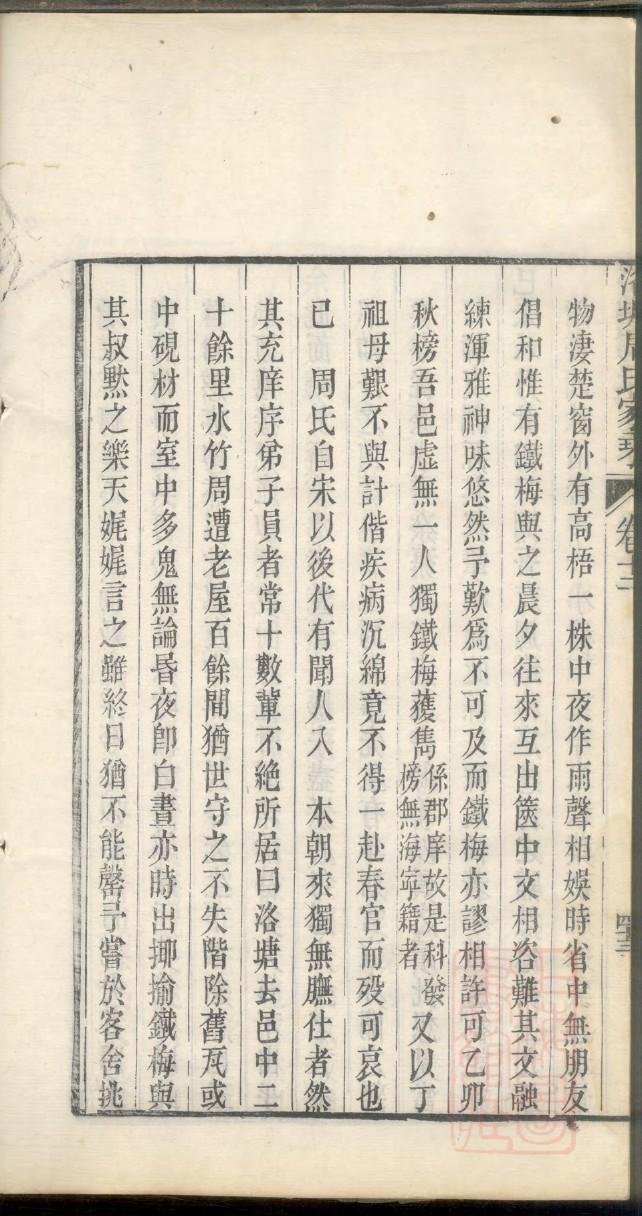 洛塘周氏家乘
卷十二
物淒楚窗外有高梧一株中夜作雨聲相娛時省中無朋友
倡和惟有鐵梅與之晨夕往來互出篋中文相咨難其文融
練渾雅神味悠然予歎爲不可及而鐵梅亦謬相許可乙卯
秋榜吾邑虛無一人獨鐵梅獲雋係郡庠故是科發榜無海寧籍者又以丁
祖母艱不與計偕疾病沉綿竟不得一赴春官而歿可哀也
已　周氏自宋以後代有聞人入　本朝來獨無膴仕者然
其充庠序弟子員者常十數輩不絶所居曰洛塘去邑中二
十餘里水竹周遭老屋百餘間猶世守之不失階除舊瓦或
中硯材而室中多鬼無論昏夜卽白晝亦時出揶揄鐵梅與
其叔黙之樂天娓娓言之雖終日猶不能罄予嘗於客舍挑